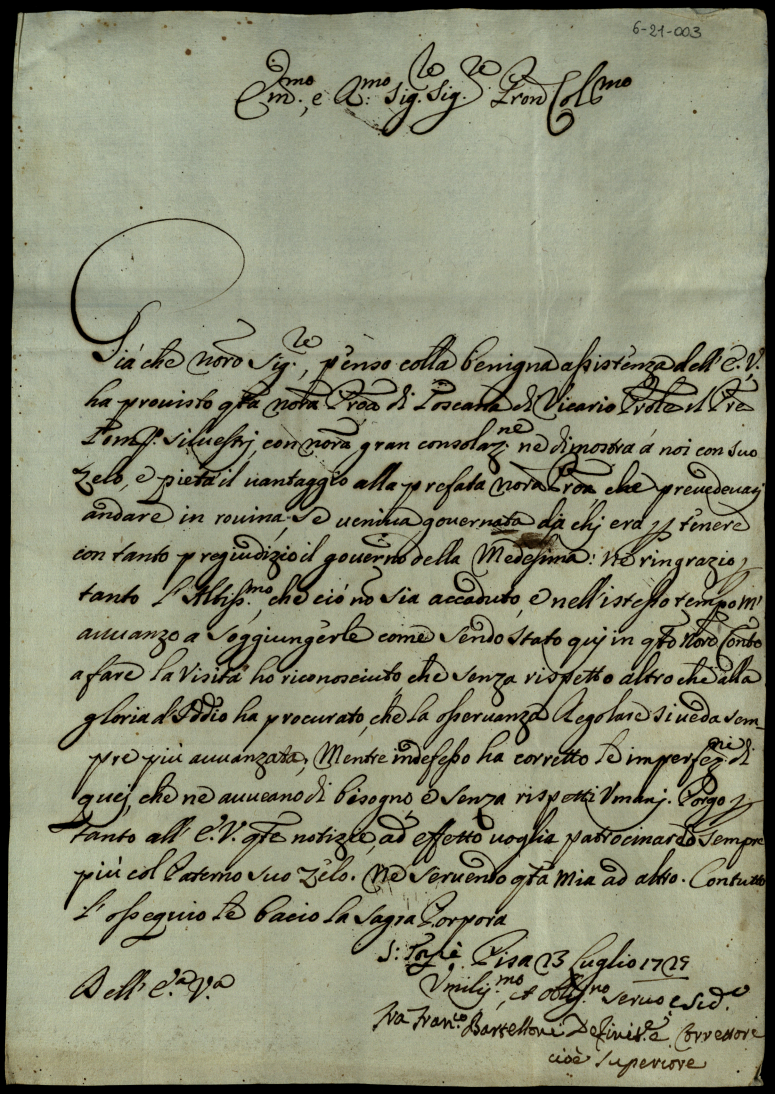 6-21-003
Em.mo, e R.mo Sig.re Sig.re Pron Col.mo
Già che nõro Sig.re, penso colla benigna assistenza dell' E. V.
ha provisto q̃ta nõra Proã di Toscana di Vicario Prole il Pre
Silvestri, con nõra gran consolaz.ne ne dimostra á noi con suo
Zelo, e pietà il vantaggio alla prefata nõra Proã che prevedevasi
andare in rovina, se veniva governata da chi era p tenere
con tanto pregiudizio il governo della Medesima: Ne ringrazio p
tanto l'Altiss.mo, che ciò nõ sia accaduto, e nell'istesso tempo m'
avvanzo a soggiungerle come sendo stato qui in q̃to Nõro Conto
a fare la Visita ho riconosciuto che senza rispetto altro che alla
gloria d'Iddio ha procurato, che la osservanza Regolare si veda sem-
pre più avvanzata, Mentre indefesso ha corretto le imperfez.ni di
quei, che ne avveano di bisogno e senza rispetti Vmani. Porgo p
tanto all' E. V. q̃te notizie, ad effetto voglia patrocinarlo sempre
più col Paterno suo Zelo. Ne servendo q̃ta mia ad altro. Con tutto
l'ossequio le bacio la Sagra Porpora
Pisa 13 Luglio 1729
Dell' E.a V.a
Vmiliss.mo, et obblig.mo servo e
Fra Fran.co Bartelloni Correttore
cioè Superiore